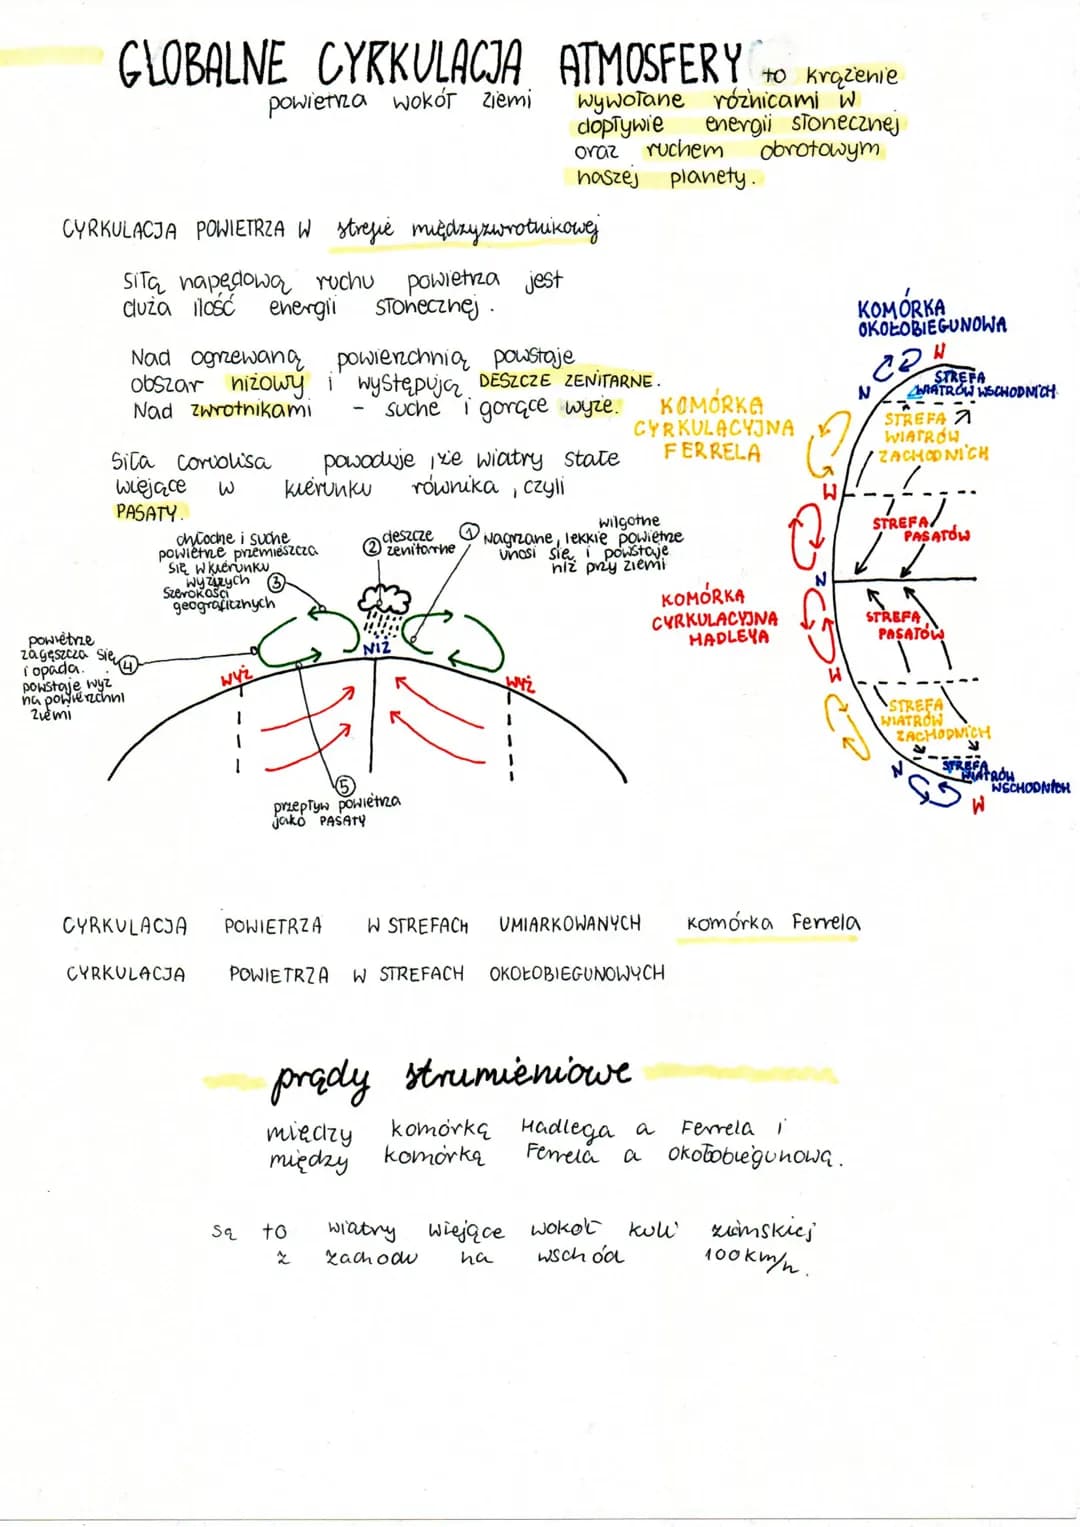 GLOBALNE CYRKULACJA ATMOSFERY to krążenie
powietrza wokół ziemi
wywołane różnicami w
dopływie energii słonecznej
oraz ruchem obrotowym
naszej planety.
CYRKULACJA POWIETRZA W strefie międzyzwrotnikowej
Siłą napędową ruchu powietrza jest
duża ilość energii słonecznej.
Nad ogrzewaną powierzchnią powstaje
obszar niżowy i występują DESZCZE ZENITARNE.
Nad zwrotnikami - suche i gorące wyże.
Siła Coriolisa powoduje, że wiatry stałe
wiejące w kierunku równika, czyli
PASATY.
chłodne i suche
powietrze przemieszcza
się w kierunku
wyższych ③
szerokości
geograficznych
② deszcze
zenitarne
① wilgotne
Nagrzane, lekkie powietrze
unosi się i powstaje
niż przy ziemi
powietrze
zagęszcza się ④
i opada.
powstaje wyż
na powierzchni
ziemi
WYŻ
NIŻ
WYŻ
⑤
przepływ powietrza
jako PASATY
KOMÓRKA
OKOŁOBIEGUNOWA
W
N
STREFA
WIATRÓW WSCHODNICH
KOMÓRKA
CYRKULACYJNA
FERRELA
STREFA
WIATRÓW
ZACHODNICH
W
STREFA
PASATÓW
N
KOMÓRKA
CYRKULACYJNA
HADLEYA
STREFA
PASATÓW
W
STREFA
WIATRÓW
ZACHODNICH
N
STREFA
WIATRÓW
WSCHODNICH
W
CYRKULACJA POWIETRZA W STREFACH UMIARKOWANYCH Komórka Ferrela
CYRKULACJA POWIETRZA W STREFACH OKOŁOBIEGUNOWYCH
prądy strumieniowe
między komórką Hadlega a Ferrela i
między komórką Ferrela a okołobiegunową.
Są to wiatry wiejące wokół kuli ziemskiej
z zachodu na wschód 100km/h.